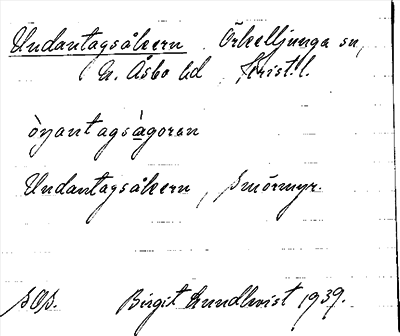 Undantagsåkern Örkelljunga sn,
N. Åsbo hd Krist. l.
ònantagsàgoran
Undantagsåkern, Smörmyr.
Birgit Lundkvist 1939.